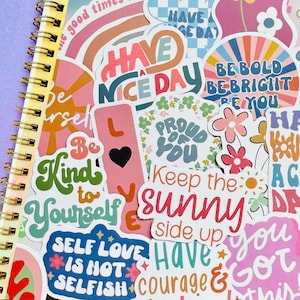 the good times
HAVE
A NICE DAY
HAVE
A NICE DAY
BE BOLD
BE BRIGHT
BE YOU
Be
Yourself
L
VE
PROUD
OF
YOU
Be
Kind
to
Yourself
Keep the
sunny
side up
HA
A
DA
SELF LOVE
IS NOT
SELFISH
Have
courage
&
You
Got
this